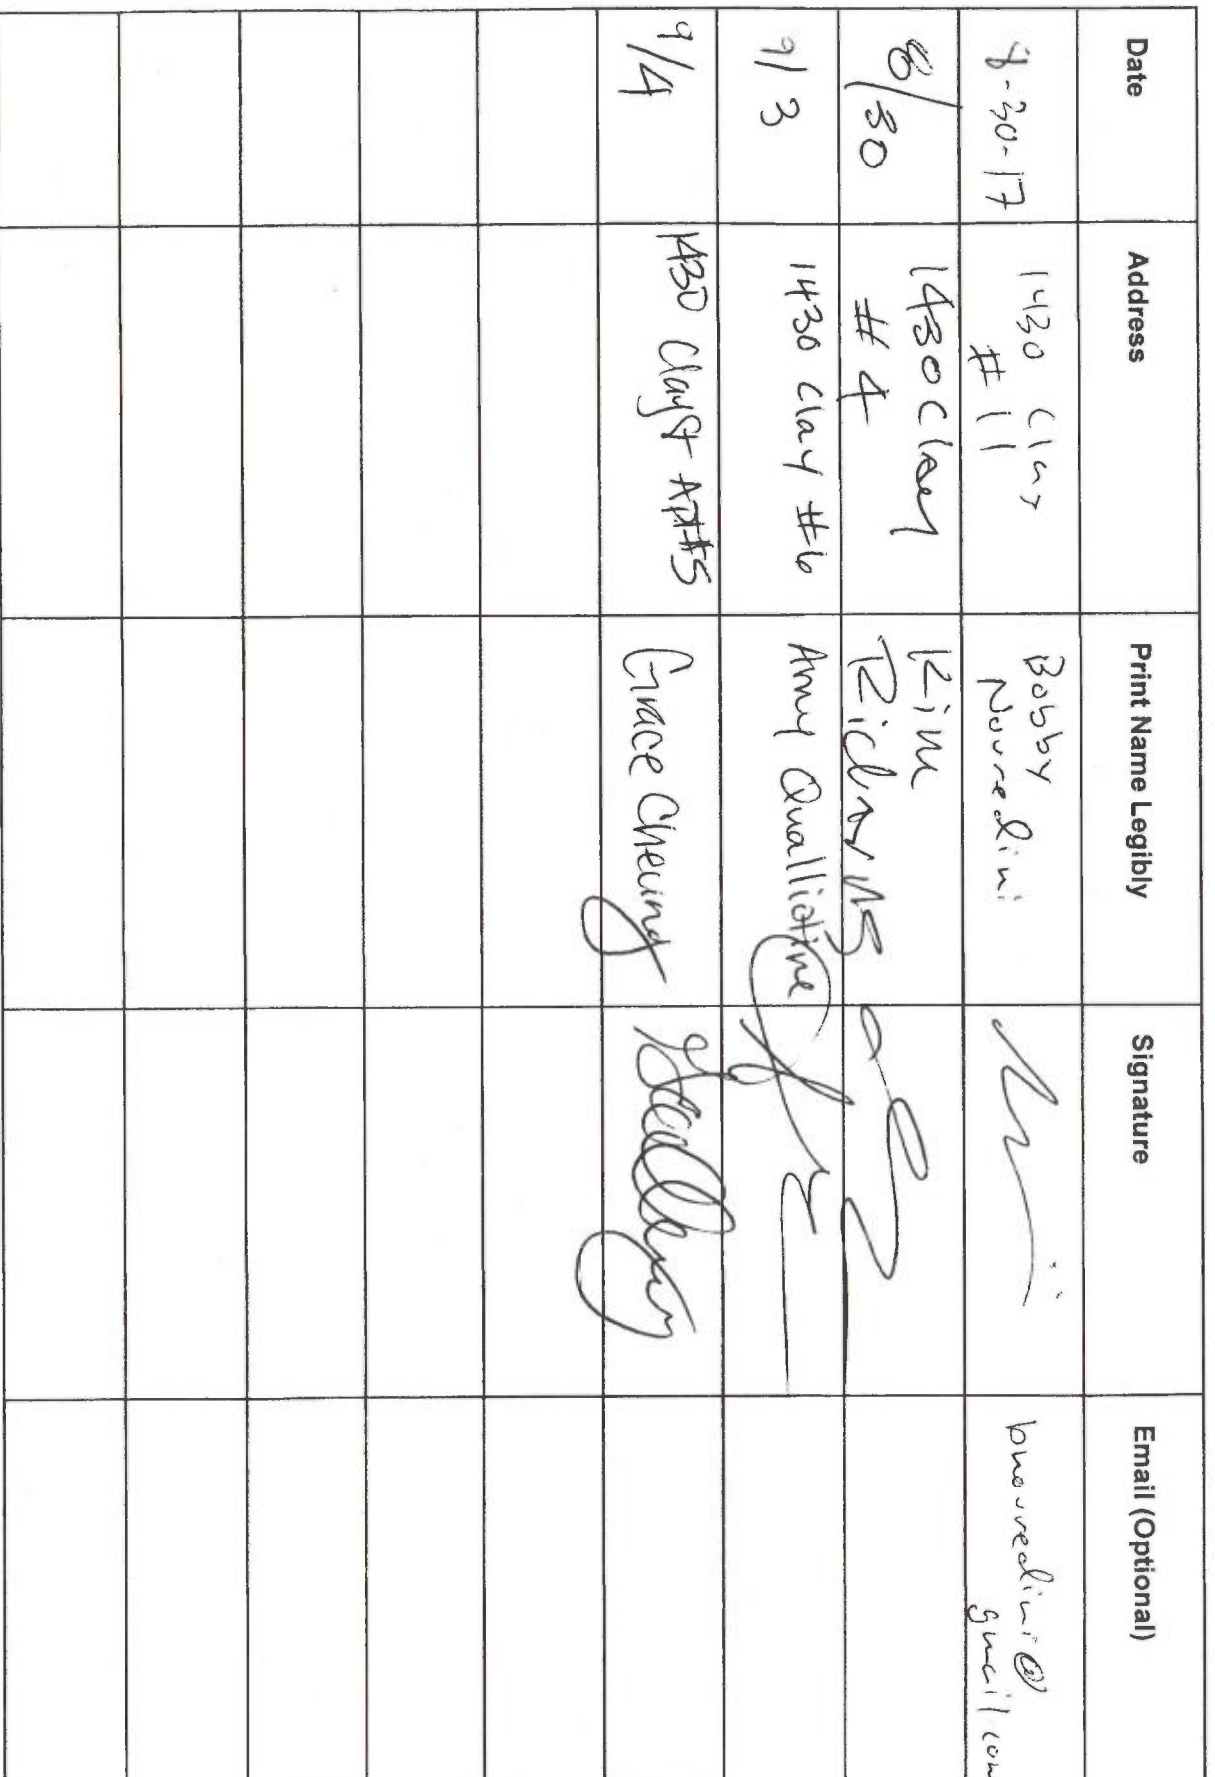 Date Address Print Name Legibly Signature Email (Optional)
8-30-17 1430 Clay Bobby bnouredini@
#11 Nouredini gmail.com
8/30 1430 Clay Kim
#4 Richards
9/3 1430 Clay #6 Amy
9/4 1430 Clay St Apt#5 Grace Cheung